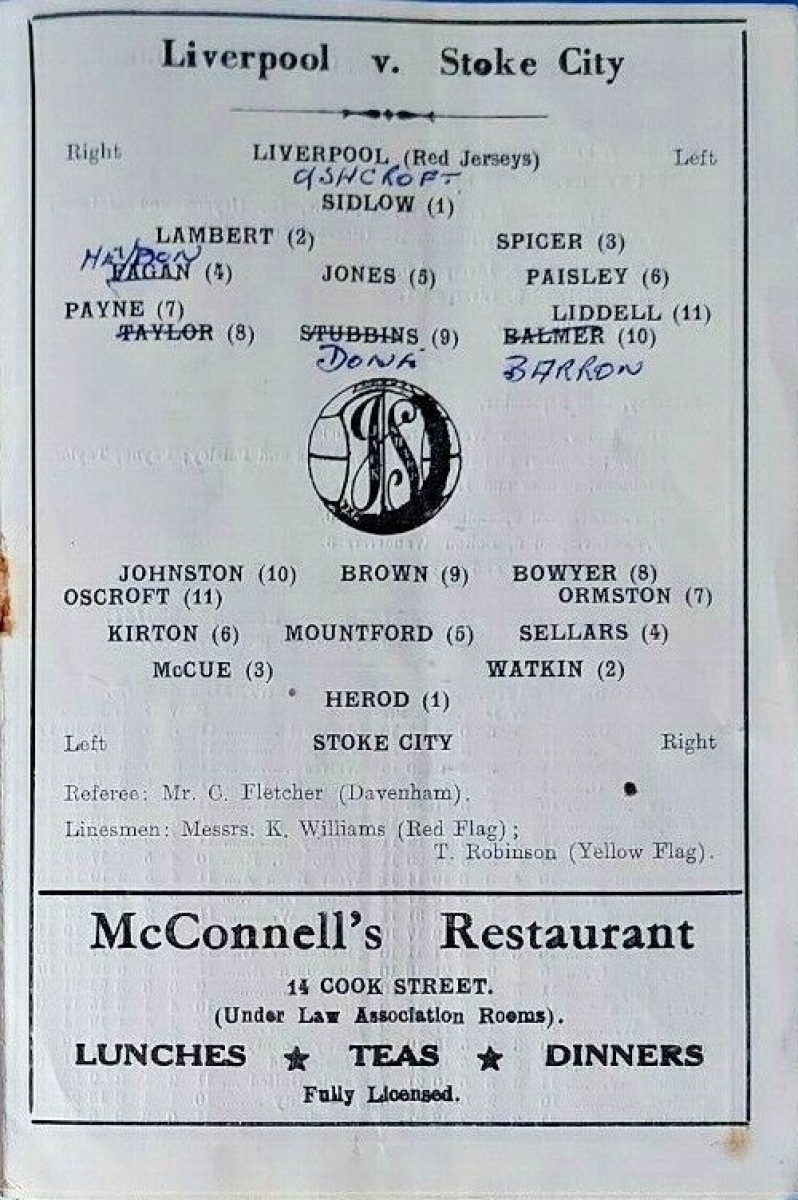 Liverpool v. Stoke City
Right LIVERPOOL (Red Jerseys) Left
ASHCROFT
SIDLOW (1)
LAMBERT (2) SPICER (3)
HEYDON
FAGAN (4) JONES (5) PAISLEY (6)
PAYNE (7) LIDDELL (11)
TAYLOR (8) STUBBINS (9) BALMER (10)
DONE BARRON
JOHNSTON (10) BROWN (9) BOWYER (8)
OSCROFT (11) ORMSTON (7)
KIRTON (6) MOUNTFORD (5) SELLARS (4)
McCUE (3) WATKIN (2)
HEROD (1)
Left STOKE CITY Right
Referee: Mr. C. Fletcher (Davenham).
Linesmen: Messrs. K. Williams (Red Flag) ;
T. Robinson (Yellow Flag).
McConnell's Restaurant
14 COOK STREET.
(Under Law Association Rooms).
LUNCHES ★ TEAS ★ DINNERS
Fully Licensed.